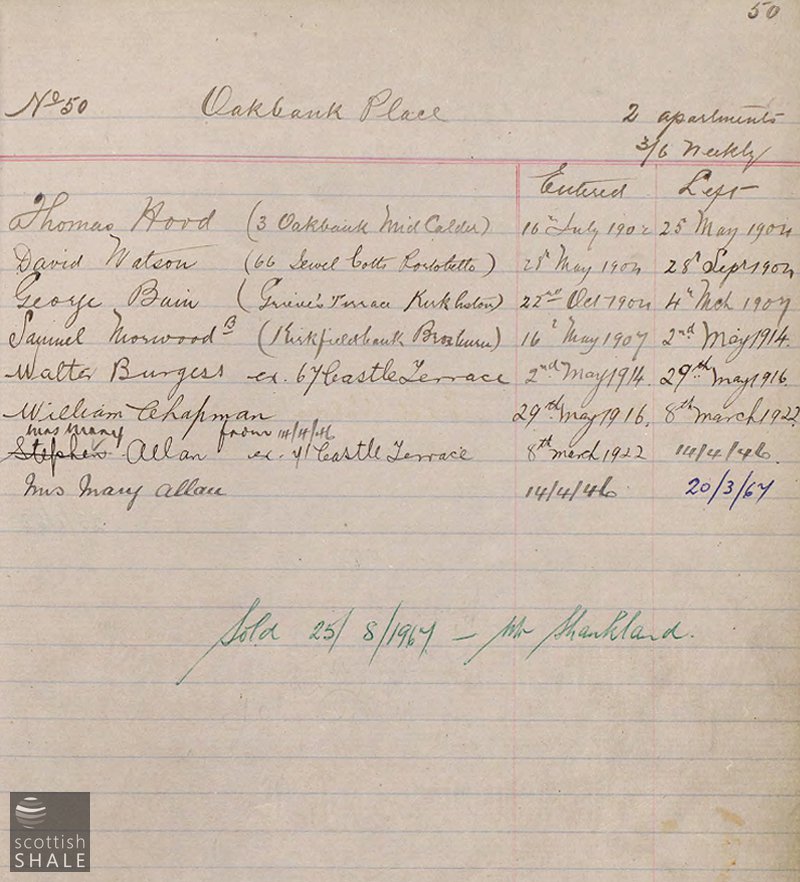 50
No 50 Oakbank Place 2 apartments
3/6 Weekly
Entered Left
Thomas Hood (3 Oakbank Mid Calder) 16th July 1902 25 May 1904
David Watson (66 Jewel Cotts Portobello) 28th May 1904 28th Sept 1904
George Bain (Grieve's Terrace Kirkliston) 22nd Oct 1904 4th Mch 1907
Samuel Morwood B (Kirkfieldbank Broxburn) 16th May 1907 2nd May 1914.
Walter Burgess ex. 67 Castle Terrace 2nd May 1914. 29th May 1916.
William Chapman 29th May 1916. 8th March 1922
Mrs Mary from 14/4/46
Stephen Allan ex. 41 Castle Terrace 8th March 1922 14/4/46.
Mrs Mary Allan 14/4/46 20/3/67
Sold 25/8/1967 — Mr Shankland.
scottish
SHALE